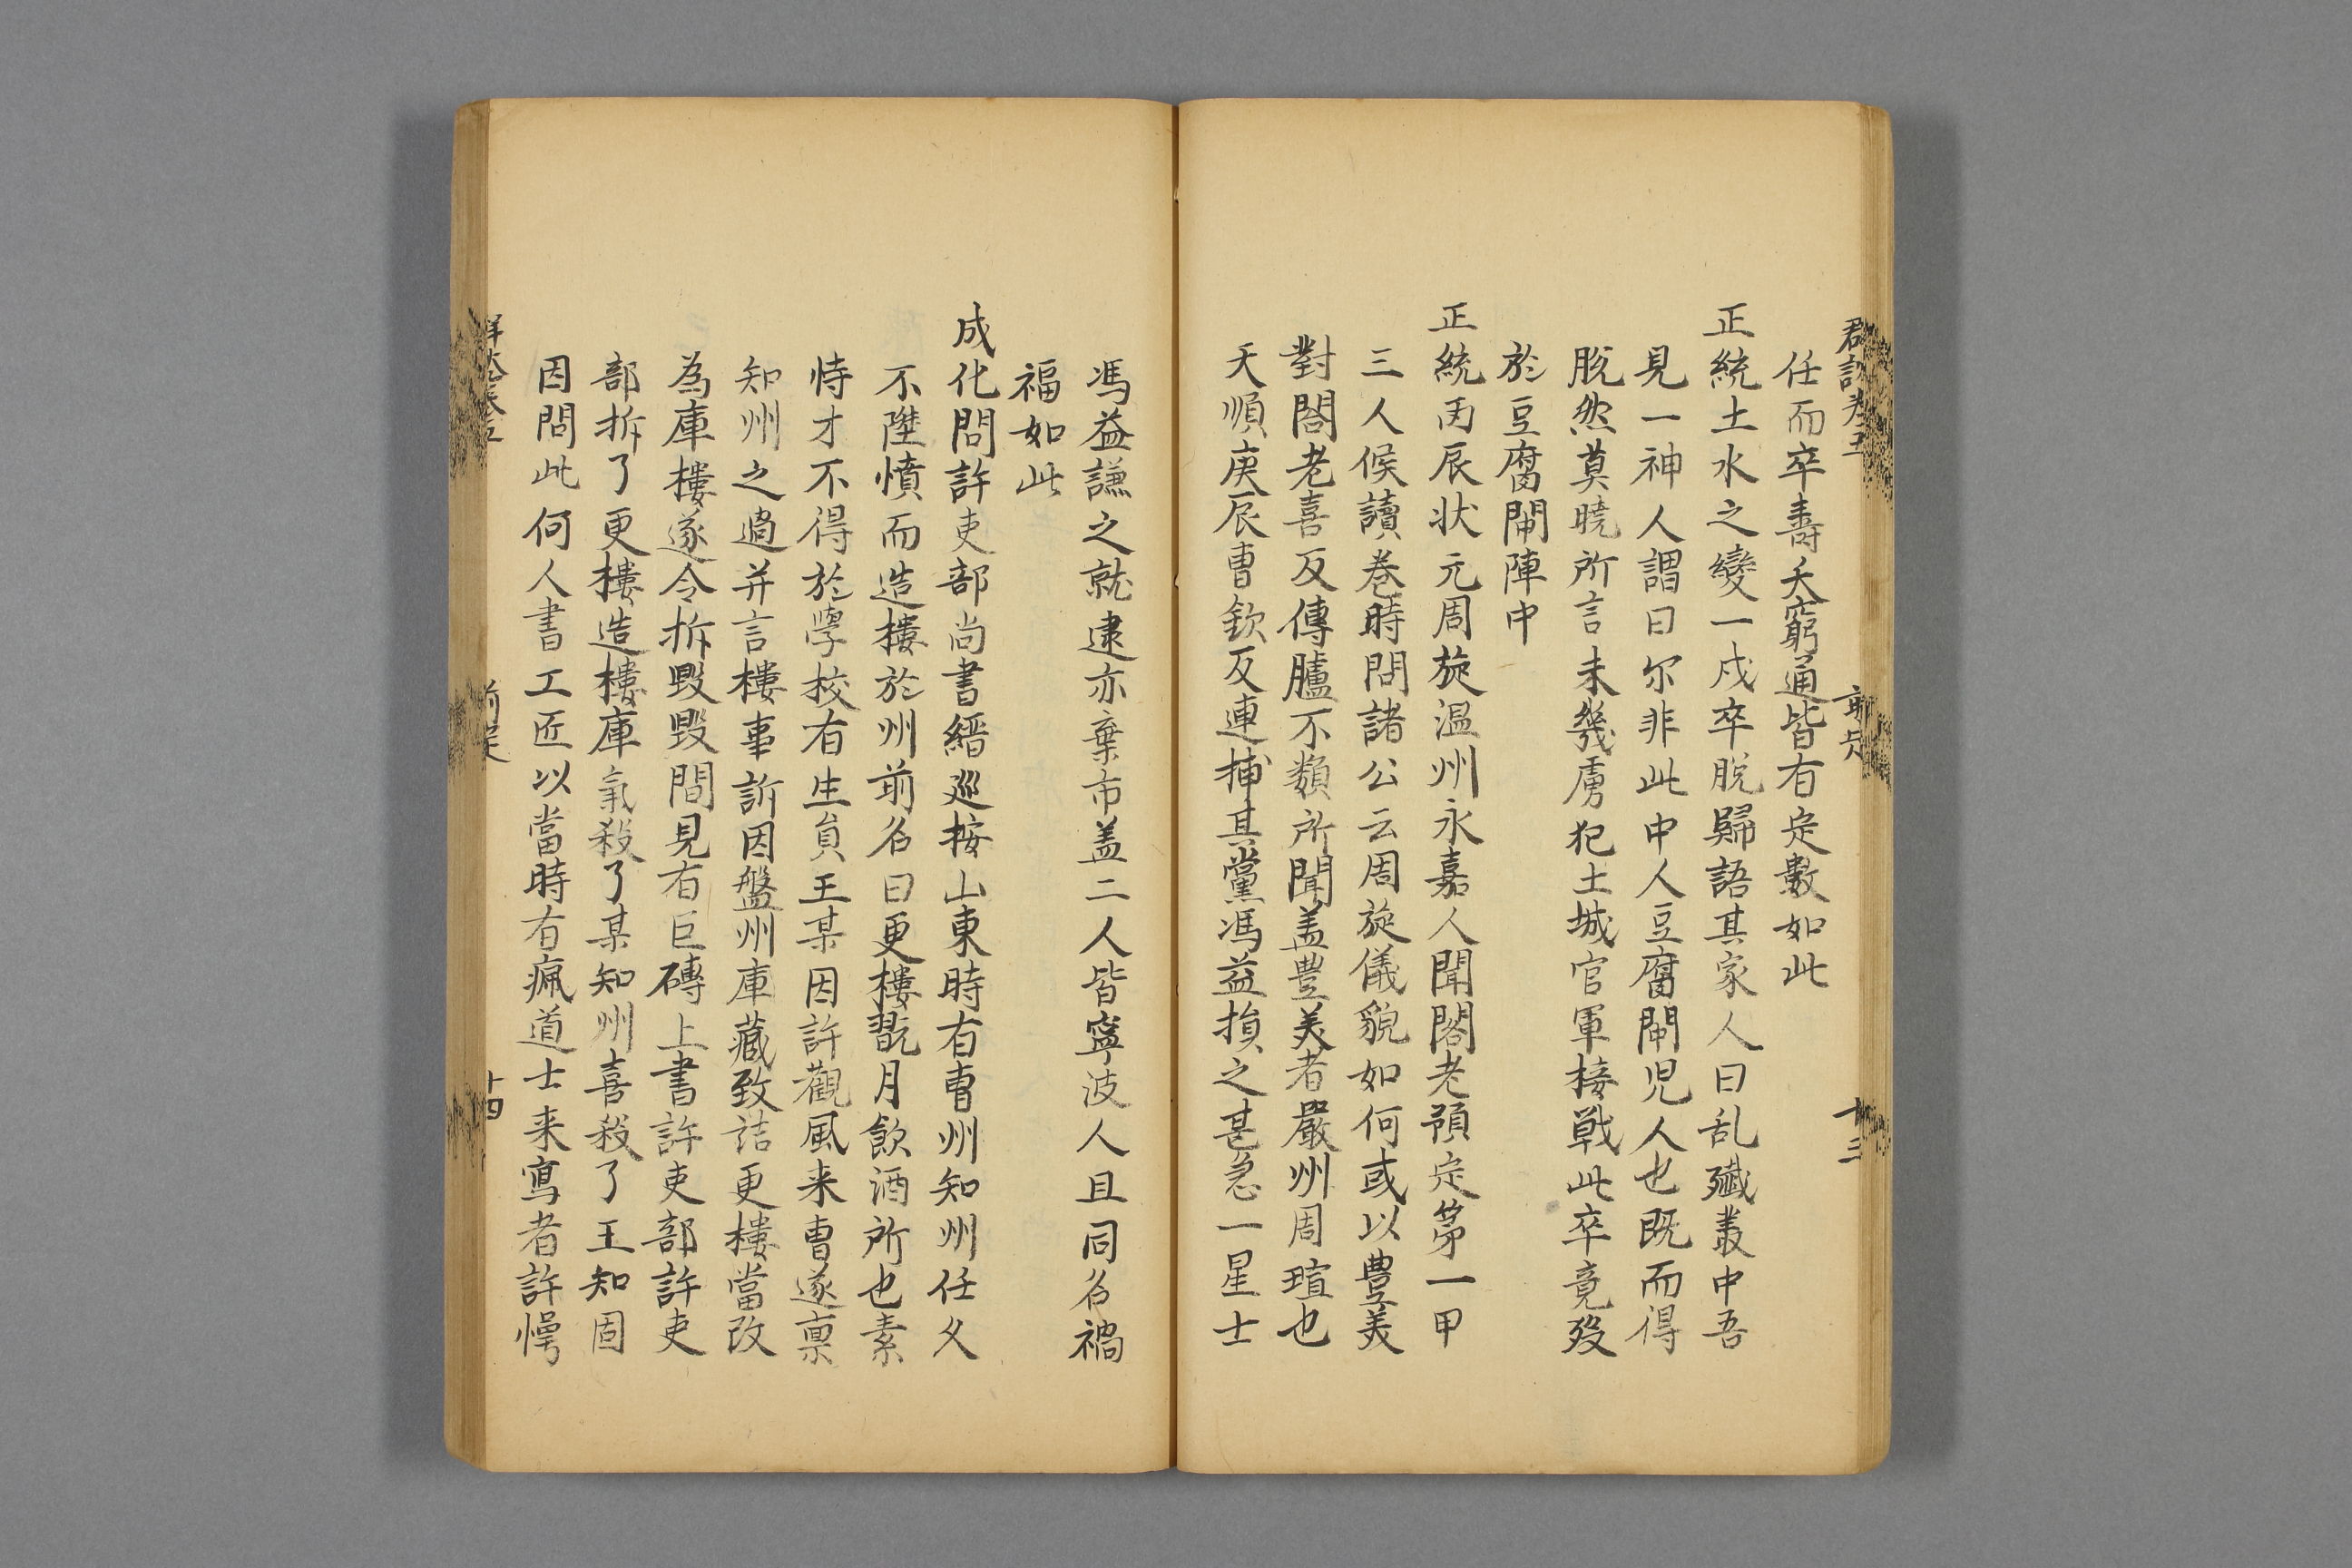 群談卷五 前定 十三
任而卒壽夭窮通皆有定數如此
正統土水之變一戍卒脫歸語其家人曰乱殲叢中吾
見一神人謂曰尔非此中人豆腐閘児人也既而得
脫然莫曉所言未幾虜犯土城官軍接戰此卒竟歿
於豆腐閘陣中
正統丙辰状元周旋温州永嘉人聞閣老預定第一甲
三人候讀卷時問諸公云周旋儀貌如何或以豊美
對閣老喜及傳臚不類所聞盖豊美者嚴州周瑄也
天順庚辰曹欽反連捕其黨馮益損之甚急一星士
馮益謙之就逮亦棄市盖二人皆寧波人且同名禍
福如此
成化間許吏部尚書縉巡按山東時有曹州知州任久
不陞憤而造樓於州前名曰更樓翫月飲酒所也素
恃才不得於學校有生員王某因許觀風来曹遂禀
知州之過并言樓事訴因盤州庫藏致詰更樓當改
為庫樓遂令拆毀毀間見有巨磚上書許吏部許吏
部拆了更樓造樓庫氣殺了某知州喜殺了王知固
因問此何人書工匠以當時有瘋道士来寫者許愕
前定 十四